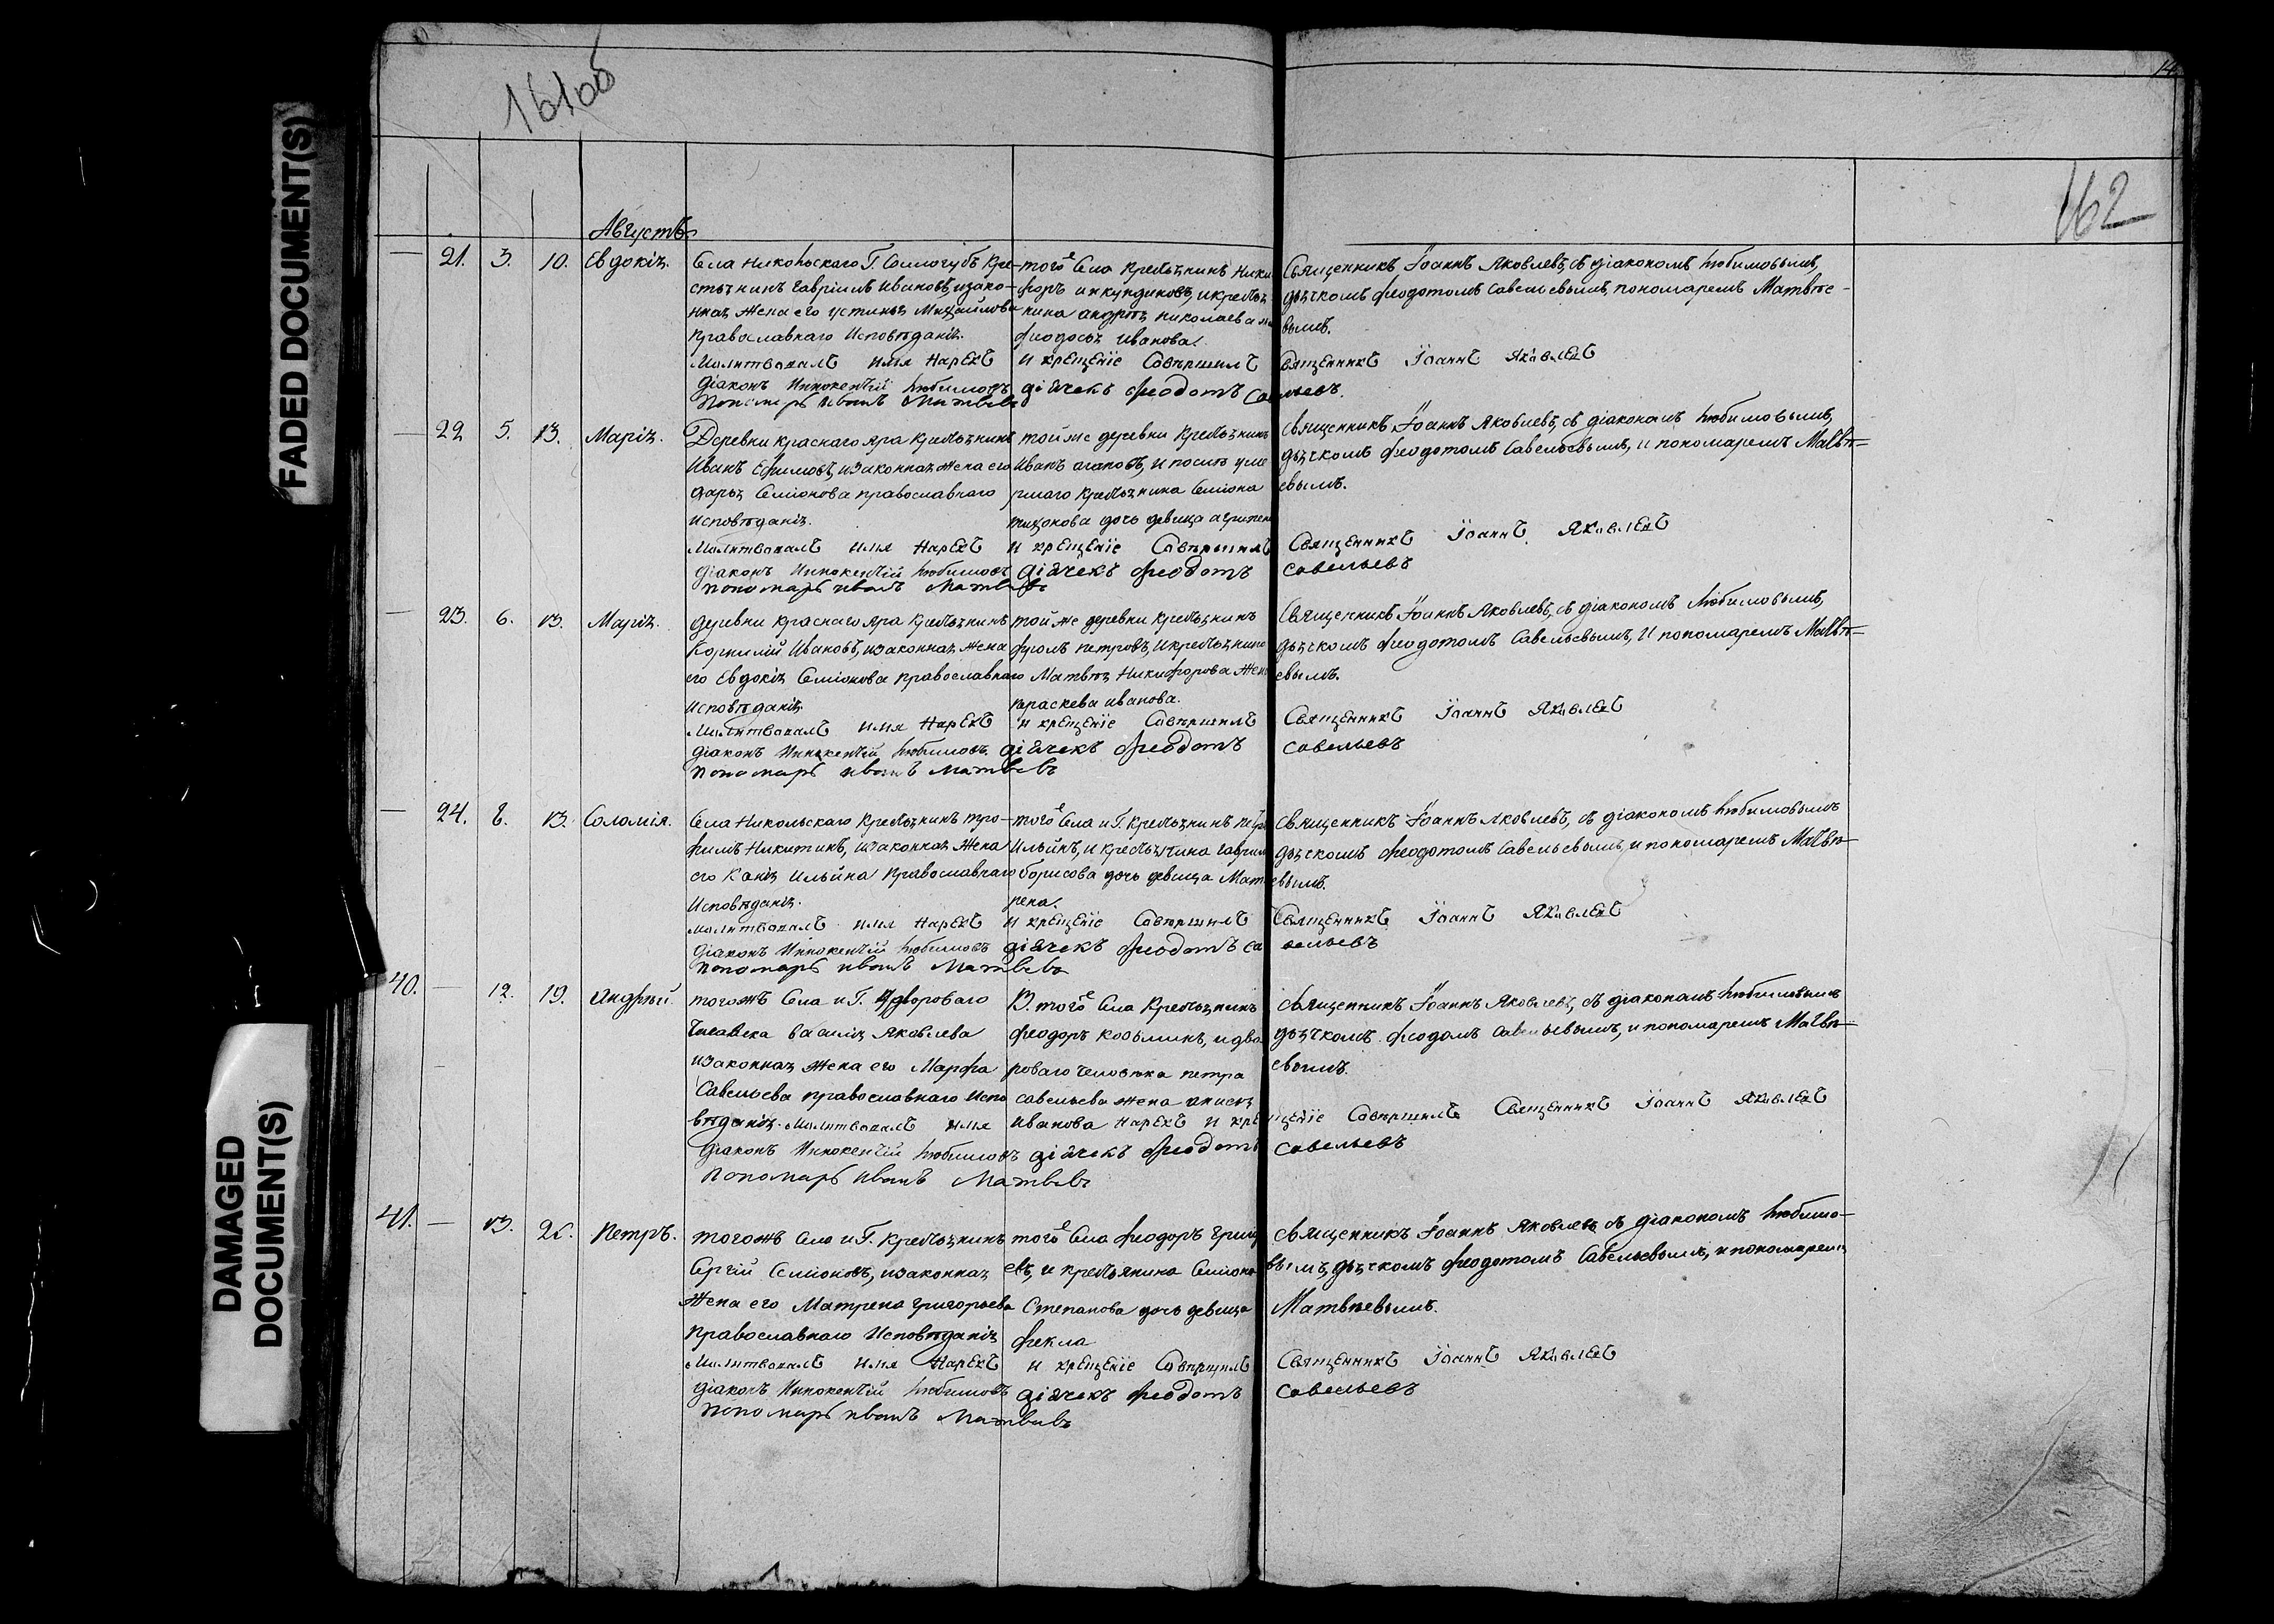 FADED DOCUMENT(S)
DAMAGED
DOCUMENT(S)
161об
162
Августъ
21. 3. 10. Евдокія.
Села Никольскаго Г. Соллогубъ Кре-
стьянинъ Гавріилъ Ивановъ, изако-
нная жена его Устинья Михайлова
православнаго Исповѣданія.
тогоже Села крестьянинъ Ники
форъ
крестьян
нина Андрѣя Николаева
Феодосья Иванова.
Священникъ Іоаннъ Яковлевъ, съ діакономъ Любимовымъ,
дьячкомъ Феодотомъ Савельевымъ, пономаремъ Матвѣе-
вымъ.
Молитвовалъ имя Нарекъ и крещеніе Совершилъ Священникъ Іоаннъ Яковлевъ
Діаконъ Иннокентій Любимовъ діячекъ Феодотъ Савельевъ.
Пономарь Иванъ Матвевъ
22 5. 13. Марія.
Деревни Краснаго Яра Крестьянинъ
Иванъ Ефимовъ, изаконная жена его
Дарья Семіонова православнаго
исповѣданія.
той же деревни Крестьянинъ
Иванъ Агаповъ, и послѣ уме
ршаго Крестьянина Семіона
Тихонова дочь девица Агрипен
Священникъ Іоаннъ Яковлевъ, съ діакономъ Любимовымъ,
дьячкомъ Феодотомъ Савельевымъ, и пономаремъ Матвѣ=
евымъ.
Молитвовалъ имя Нарекъ и крещеніе Совершилъ Священникъ Іоаннъ Яковлевъ
Діаконъ Иннокентій Любимовъ діячекъ Феодотъ Савельевъ
пономарь Иванъ Матвевъ
23. 6. 13. Марія.
Деревни Краснаго Яра Крестьянинъ
Корнилій Ивановъ, изаконная жена
его Евдокія Семіонова православнаго
исповѣданія
той же деревни Крестьянинъ
Фролъ Петровъ, и крестьянина
Матвѣя Никифорова жена
Параскева Иванова.
Священникъ Іоаннъ Яковлевъ, съ діакономъ Любимовымъ,
дьячкомъ Феодотомъ Савельевымъ, И пономаремъ Матвѣ=
евымъ.
Молитвовалъ имя Нарекъ и крещеніе Совершилъ Священникъ Іоаннъ Яковлевъ
Діаконъ Иннокентій Любимовъ діячекъ Феодотъ Савельевъ
пономарь Иванъ Матвевъ
24. 8. 13. Соломія.
Села Никольскаго Крестьянинъ Тро-
фимъ Никитинъ, изаконная жена
его Ильина Православнаго
Исповѣданія.
тогоже Села и Г. Крестьянинъ Петръ
Ильинъ, и крестьянина Гаврила
Борисова дочь девица Мат
рена.
Священникъ Іоаннъ Яковлевъ, съ діакономъ Любимовымъ
дьячкомъ Феодотомъ Савельевымъ, и пономаремъ Матвѣ-
евымъ.
Молитвовалъ имя Нарекъ и крещеніе Совершилъ Священникъ Іоаннъ Яковлевъ
Діаконъ Иннокентій Любимовъ діячекъ Феодотъ Савельевъ
Пономарь Иванъ Матвевъ
40. 12. 19. Андрѣй
тогожъ Села и Г. двороваго
человека Василія Яковлева
изаконная жена его Марфа
Савельева православнаго Испо
вѣданія.
тогоже Села Крестьянинъ
Феодоръ Козьминъ, и дво
роваго человѣка Петра
Савельева жена Анисья
Иванова
Священникъ Іоаннъ Яковлевъ, съ діакономъ Любимовымъ
дьячкомъ Феодомъ Савельевымъ, и пономаремъ Матвѣ-
евымъ.
Молитвовалъ имя Нарекъ и крещеніе Совершилъ Священникъ Іоаннъ Яковлевъ
Діаконъ Иннокентій Любимовъ діячекъ Феодотъ Савельевъ
Пономарь Иванъ Матвевъ
41. 13. Петръ.
тогожъ Села и Г. Крестьянинъ
Сергій Семіоновъ, изаконная
Жена его Матрена Григорьева
Православнаго Исповѣданія
тогоже Села Феодоръ Григорь
евъ, и крестьянина Семіона
Степанова дочь девица
Фекла
Священникъ Іоаннъ Яковлевъ съ діакономъ Любимо-
вымъ, дьячкомъ Феодотомъ Савельевымъ, и пономаремъ
Матвѣевымъ.
Молитвовалъ имя Нарекъ и крещеніе Совершилъ Священникъ Іоаннъ Яковлевъ
Діаконъ Иннокентій Любимовъ діячекъ Феодотъ Савельевъ
Пономарь Иванъ Матвевъ